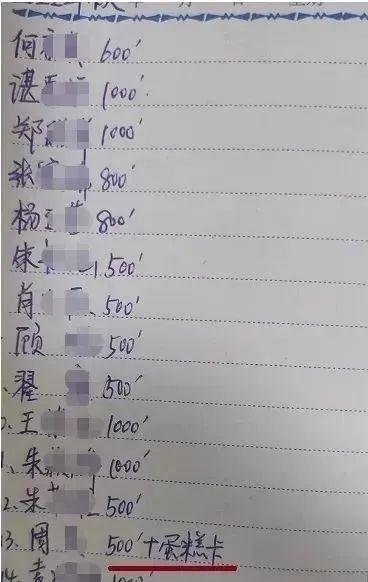 何 600'
谌 1000'
郑 1000'
张 800'
杨 800'
陈 500'
肖 500'
顾 500'
翟 500'
王 1000'
1、朱 1000'
12、朱 500'
13、周 500'+蛋糕卡
14、袁 1000'